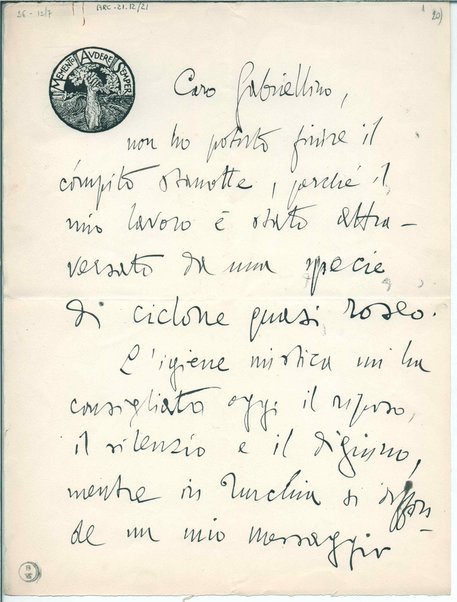 26 - 12/7
ARC-21.12/21
20)
MEMENTO AUDERE SEMPER
Caro Gabriellino,
non ho potuto finire il
cómpito stanotte, perché il
mio lavoro è stato attra-
versato da una specie
di ciclone quasi roseo.
L'igiene mistica mi ha
consigliato oggi il riposo,
il silenzio e il digiuno,
mentre in Turchia si diffon-
de un mio messaggio